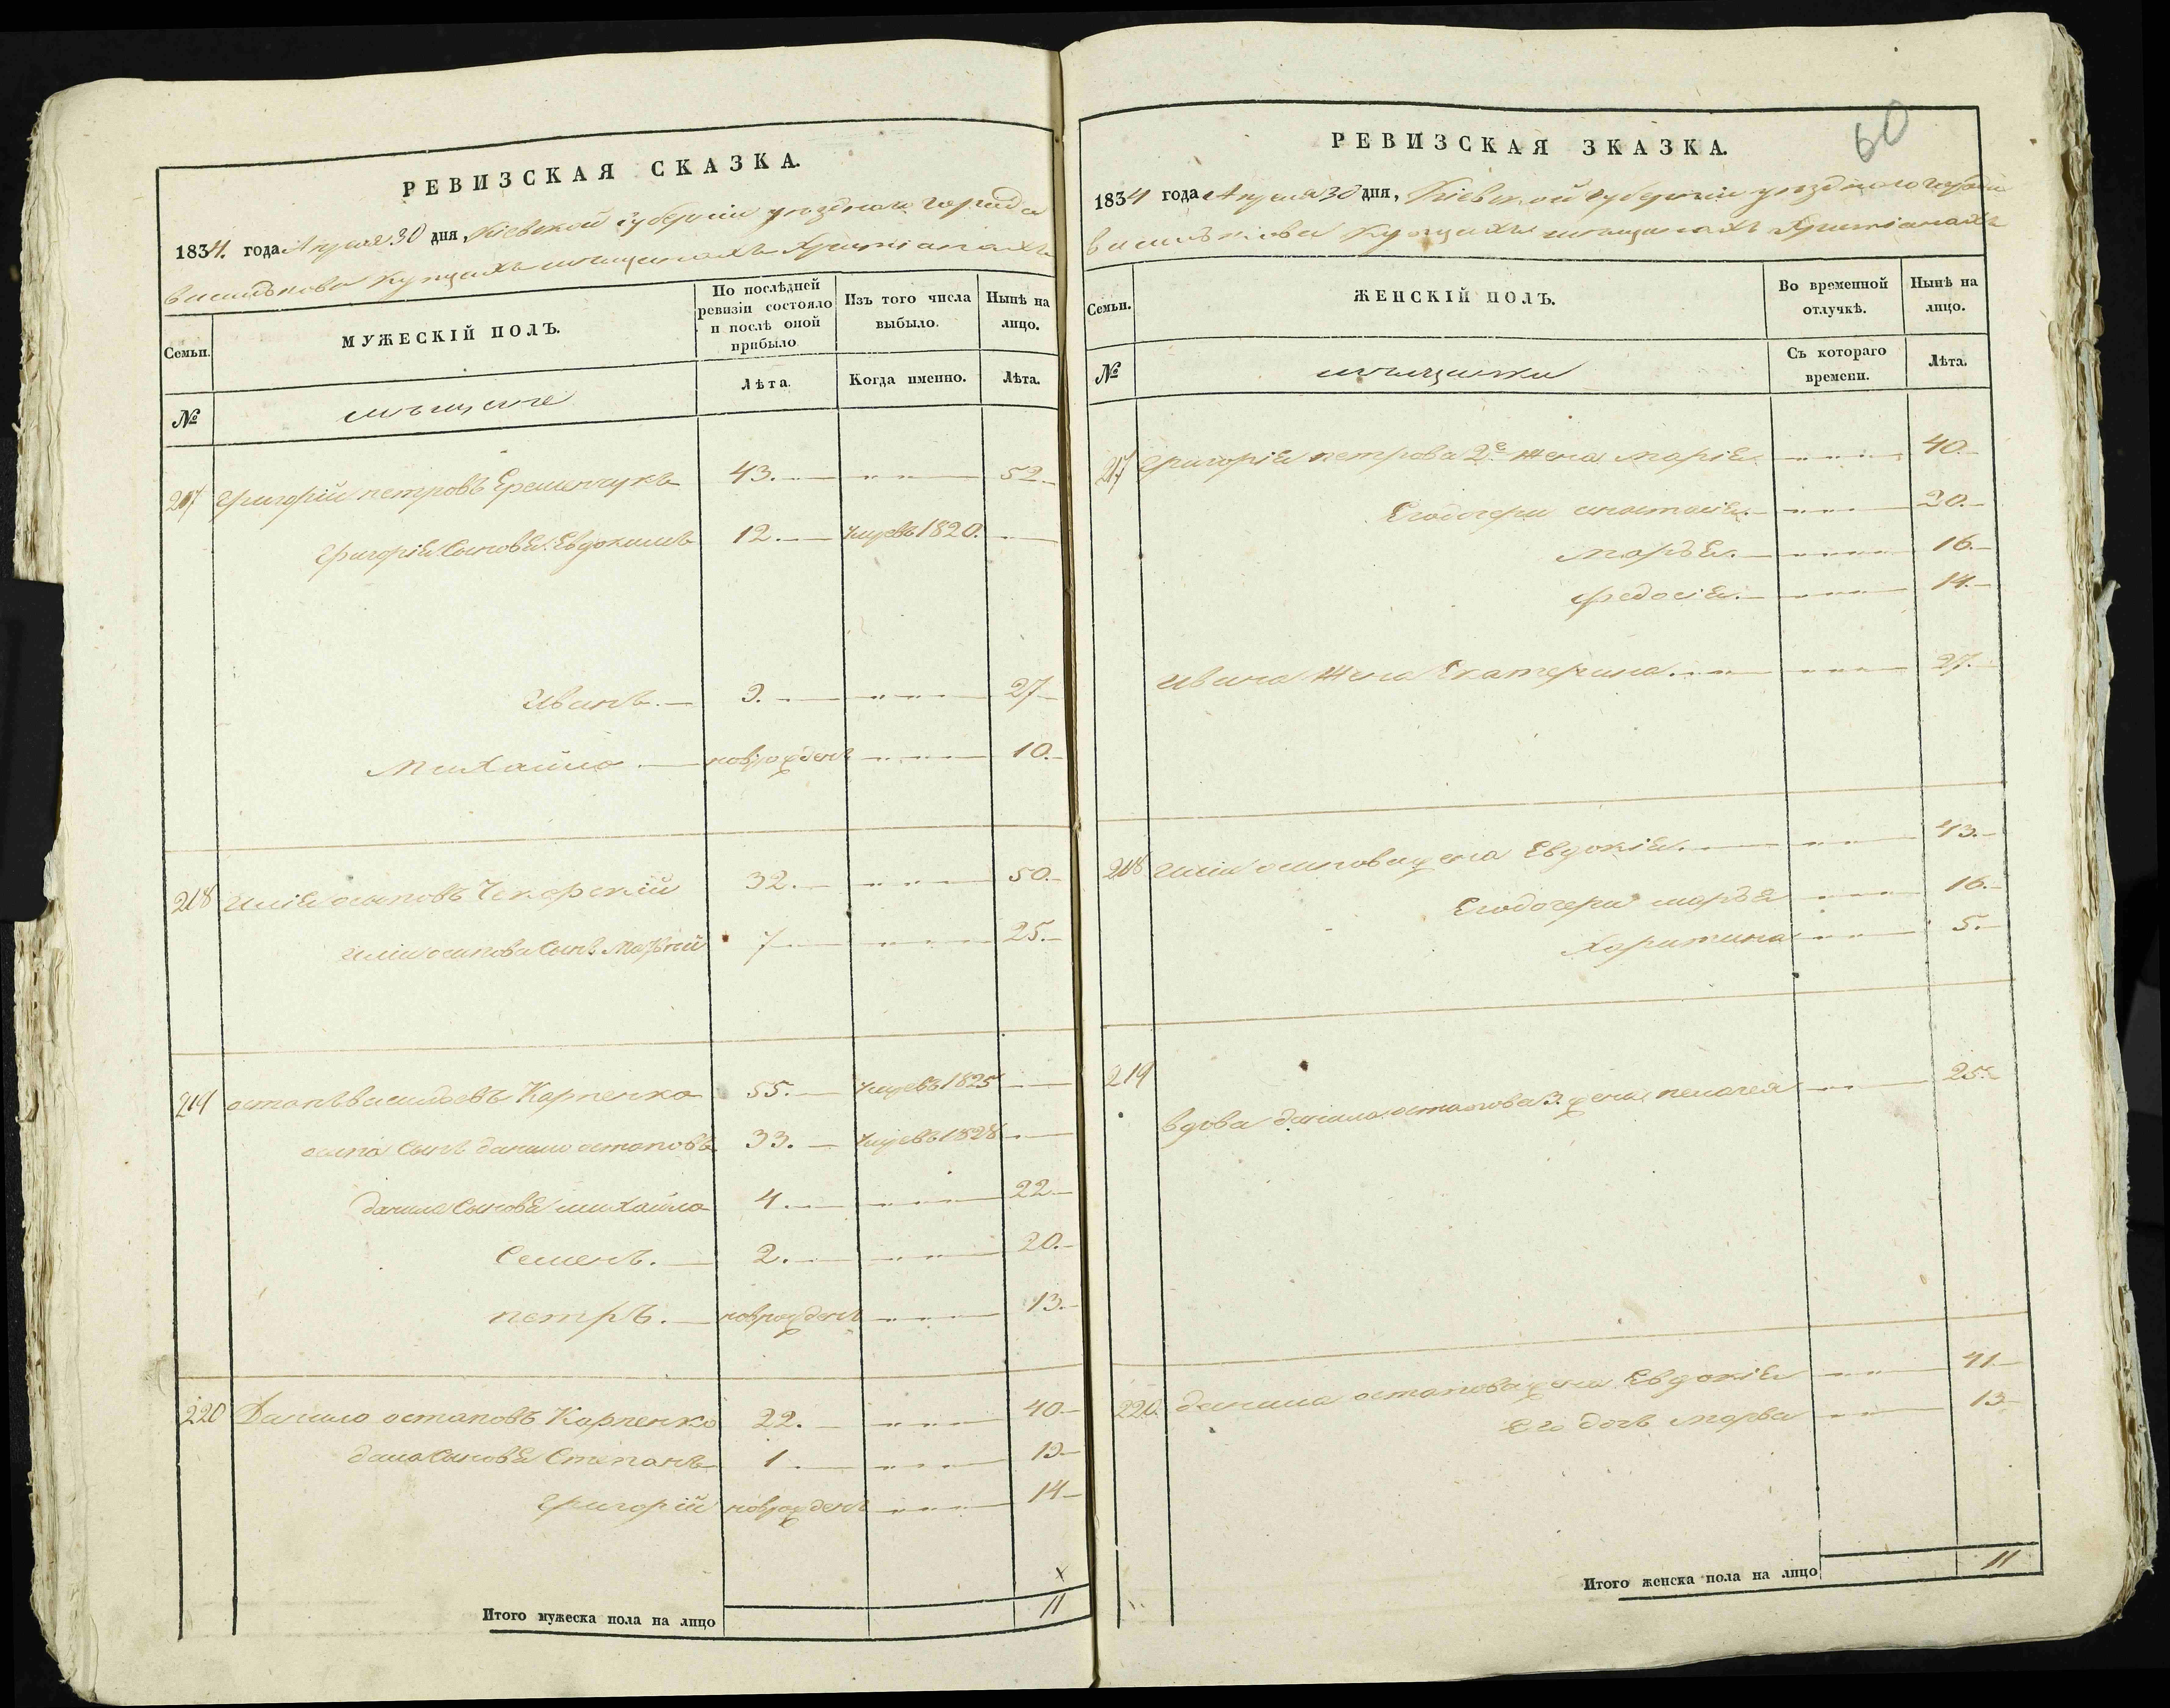 РЕВИЗСКАЯ СКАЗКА.
1834. года Апреля 30 дня, Кіевской губерніи уезднаго города
василькова Купцахъ мещанахъ Христіанахъ
Семьи.
МУЖЕСКІЙ ПОЛЪ.
По послѣдней ревизіи состояло и послѣ оной прибыло
Изъ того числа выбыло.
Нынѣ на лицо.
№
мещане
Лѣта.
Когда именно.
Лѣта.
217 Григорій петровъ Еременчукъ 43. 52
Григорія Сыновья: Евдокимъ 12. умревъ 1820.
Иванъ. 9. 27
Михайло новорожденъ 10.
218 Илія осиповъ 32. 50.
Иліи осипова Сынъ 7 25.
219 остапъ васильевъ Карпенко 55. умревъ 1825
Сынъ данило остаповъ 33. умревъ 1828
данила Сыновья михайло 4. 22
Семенъ. 2. 20.
петръ. новорожденъ 13.
220 Данило остаповъ Карпенко 22. 40
Сыновья Степанъ 1 19
григорій новорожденъ 14
Итого мужеска пола на лицо 11
60
РЕВИЗСКАЯ ЗКАЗКА.
1834 года Апреля 30 дня, Кіевской губерніи уезднаго города
василькова Купцахъ мещанахъ Христіанахъ
Семьи.
ЖЕНСКІЙ ПОЛЪ.
Во временной отлучкѣ.
Нынѣ на лицо.
№
мещанки
Съ котораго времени.
Лѣта.
217 григорія петрова 2е Жена марія 40.
Его дочери настасія. 20.
марья. 16.
федосія. 14.
Ивана Жена Екатерина. 27.
218 Иліи осипова жена Евдокія. 43.
Его дочери марья 16.
Харитина 5.
219
вдова данила остапова 3. жена пелагея 25.
220. данила остапова жена Евдокія 41
Его дочь марва 13
Итого женска пола на лицо 11